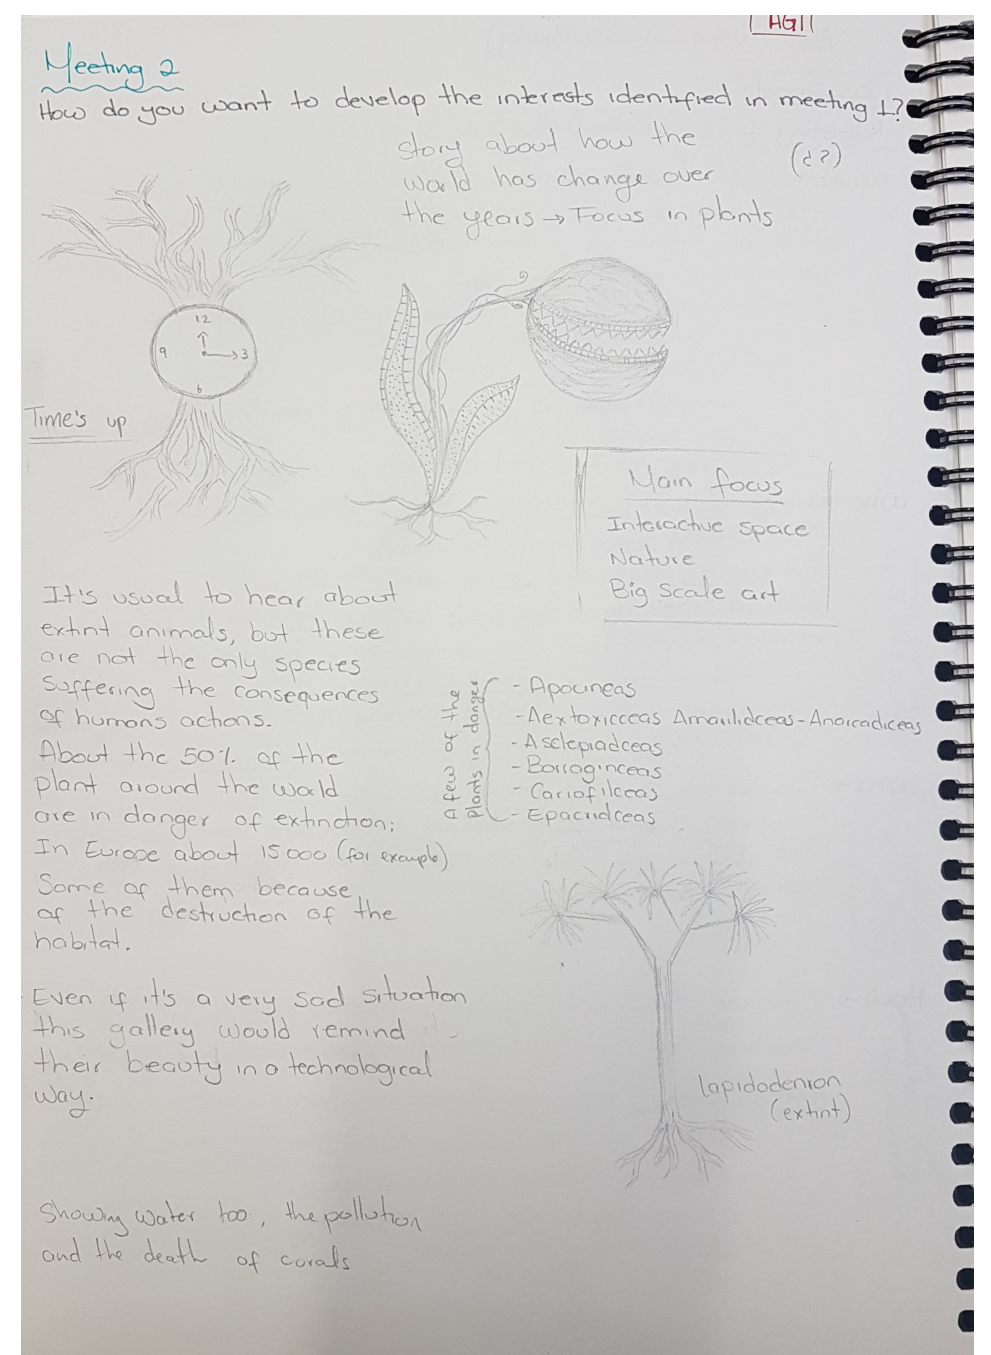 HGI
Meeting 2
How do you want to develop the interests identified in meeting 1?
Story about how the
world has change over
the years → Focus in plants
(¿?)
12
9
3
6
Time's up
Main focus
Interactive space
Nature
Big scale art
It's usual to hear about
extint animals, but these
are not the only species
suffering the consequences
of humans actions.
About the 50% of the
plant around the world
are in danger of extinction;
In Europe about 15000 (for example)
Some of them because
of the destruction of the
habitat.
A few of the
plants in danger
- Apocineas
- Aextoxicceas Amarilidceas - Anarcadiceas
- Asclepiadceas
- Borraginceas
- Cariofilceas
- Epacridceas
Even if it's a very sad situation
this gallery would remind
their beauty in a technological
way.
Lapidodenron
(extint)
Showing water too, the pollution
and the death of corals